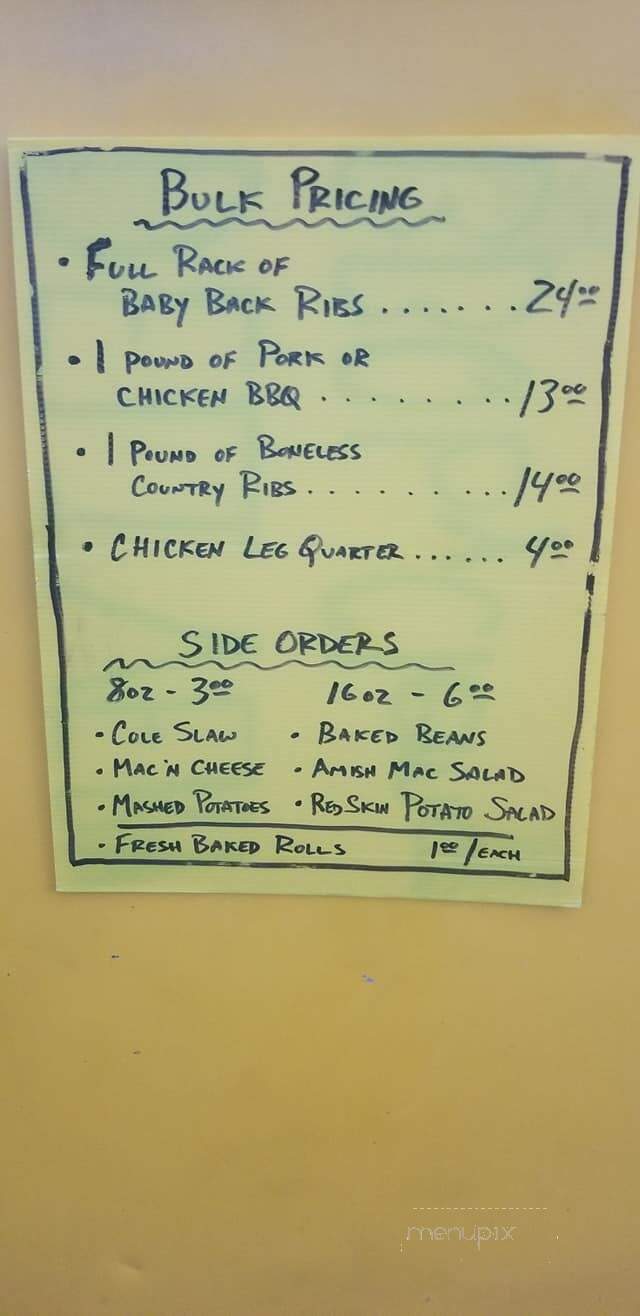 BULK PRICING
• FULL RACK OF
BABY BACK RIBS ....... 24.00
• 1 POUND OF PORK OR
CHICKEN BBQ ......... 13.00
• 1 POUND OF BONELESS
COUNTRY RIBS .......... 14.00
• CHICKEN LEG QUARTER ...... 4.00
SIDE ORDERS
8oz - 3.00 16oz - 6.00
• COLE SLAW • BAKED BEANS
• MAC 'N CHEESE • AMISH MAC SALAD
• MASHED POTATOES • RED SKIN POTATO SALAD
• FRESH BAKED ROLLS 1.00/EACH
menupix